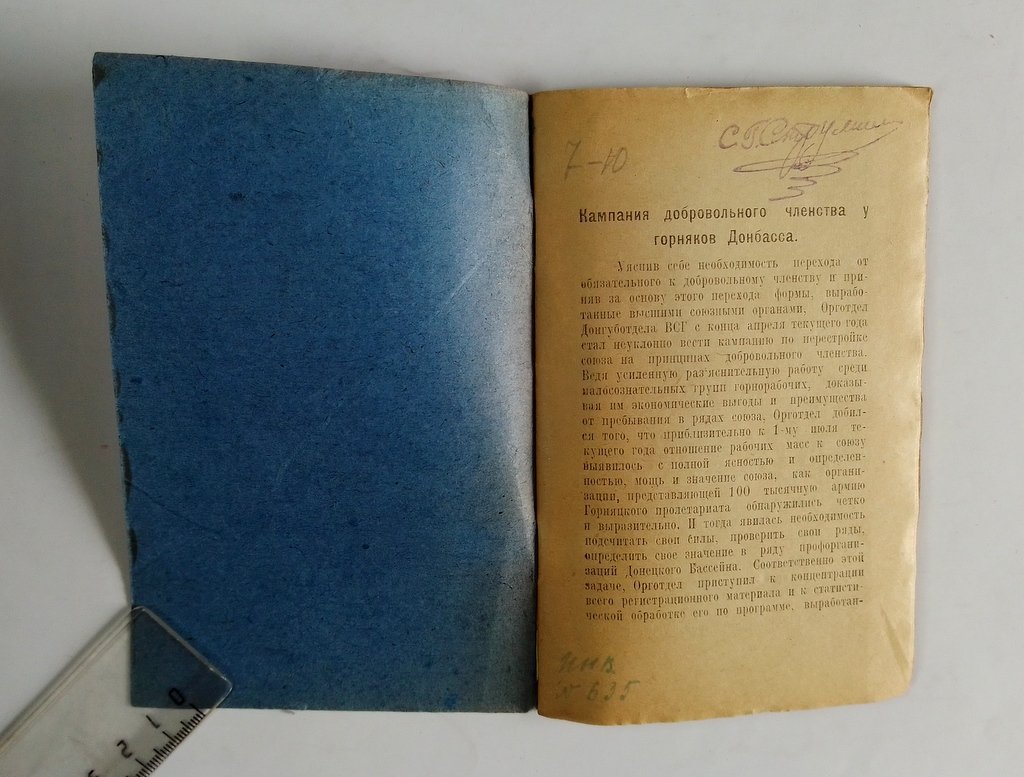 7-10
С. Г. Струмилин
Кампания добровольного членства у
горняков Донбасса.
Уяснив себе необходимость перехода от
обязательного к добровольному членству и при-
няв за основу этого перехода формы, вырабо-
танные высшими союзными органами, Орготдел
Донгуботдела ВСГ с конца апреля текущего года
стал неуклонно вести кампанию по перестройке
союза на принципах добровольного членства.
Ведя усиленную раз'яснительную работу среди
малосознательных групп горнорабочих, доказы-
вая им экономические выгоды и преимущества
от пребывания в рядах союза, Орготдел добил-
ся того, что приблизительно к 1-му июля те-
кущего года отношение рабочих масс к союзу
выявилось с полной ясностью и определен-
ностью, мощь и значение союза, как органи-
зации, представляющей 100 тысячную армию
Горняцкого пролетариата обнаружились четко
и выразительно. И тогда явилась необходимость
подсчитать свои силы, проверить свои ряды,
определить свое значение в ряду профоргани-
заций Донецкого Бассейна. Соответственно этой
задаче, Орготдел приступил к концентрации
всего регистрационного материала и к статисти-
ческой обработке его по программе, выработан-
Инв
№ 635
0 1 2